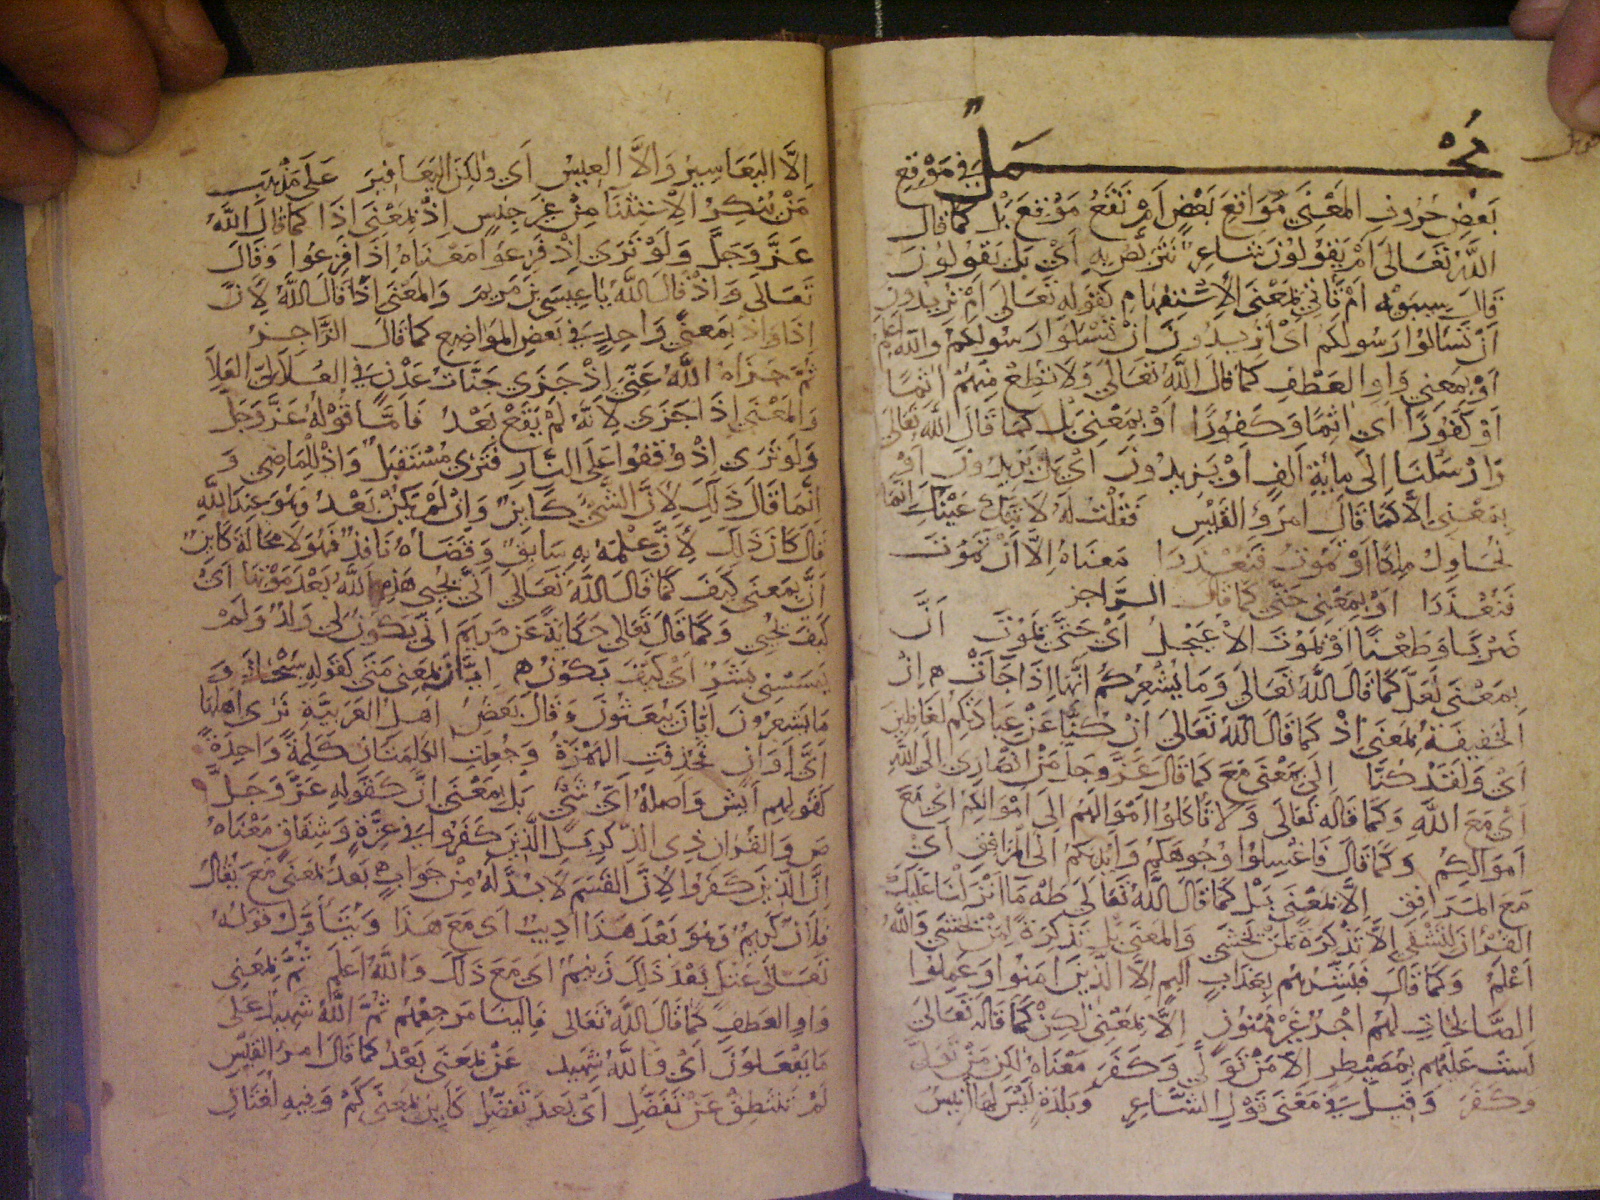 مُجْمَلٌ في مَوْقِع
بَعْضِ حُرُوفِ المَعْنَى مَوَاقِعَ بَعْضٍ اَمْ تَقَعُ مَوْقِعَ بَلْ كَمَا قَالَ
اللَّهُ تَعَالَى اَمْ يَقُولُونَ شَاعِرٌ نَتَرَبَّصُ بِهِ اَيْ بَلْ يَقُولُونَ
قَالَ سِيبَوَيْهِ اَمْ تَأتِي بِمَعْنَى الْاِسْتِفْهَامِ كَقَوْلِهِ تَعَالَى اَمْ تُرِيدُونَ
اَنْ تَسْأَلُوا رَسُولَكُمْ اَيْ اَتُرِيدُونَ اَنْ تَسْئَلُوا رَسُولَكُمْ وَاللَّهُ اَعْلَمُ
اَوْ بِمَعْنَى وَاوِ العَطْفِ كَمَا قَالَ اللَّهُ تَعَالَى وَلَا تُطِعْ مِنْهُمْ اٰثِمًا
اَوْ كَفُورًا اَيْ اٰثِمًا وَكَفُورًا اَوْ بِمَعْنَى بَلْ كَمَا قَالَ اللَّهُ تَعَالَى
وَاَرْسَلْنَا اِلَى مِائَةِ اَلْفٍ اَوْ يَزِيدُونَ اَيْ بَلْ يَزِيدُونَ اَوْ
بِمَعْنَى اِلَّا كَمَا قَالَ امْرَؤُ القَيْسِ فَقُلْتُ لَهُ لَا تَبْكِ عَيْنُكَ اِنَّمَا
نُحَاوِلُ مُلْكًا اَوْ نَمُوتَ فَنُعْذَرَا مَعْنَاهُ اِلَّا اَنْ نَمُوتَ
فَنُعْذَرَا اَوْ بِمَعْنَى حَتَّى كَمَا قَالَ الرَّاجِز
ضَرْبًا وَطَعْنًا اَوْ يَمُوتَ الْاَعْجَلُ اَيْ حَتَّى يَمُوتَ اَنَّ
بِمَعْنَى لَعَلَّ كَمَا قَالَ اللَّهُ تَعَالَى وَمَا يُشْعِرُكُمْ اَنَّهَا اِذَا جَاءَتْ اِنْ
الخَفِيفَةُ بِمَعْنَى اِذْ كَمَا قَالَ اللَّهُ تَعَالَى اِنْ كُنَّا عَنْ عِبَادَتِكُمْ لَغَافِلِينَ
اَيْ وَلَقَدْ كُنَّا اِلَى بِمَعْنَى مَعَ كَمَا قَالَ عَزَّ وَجَلَّ مَنْ اَنْصَارِي اِلَى اللَّهِ
اَيْ مَعَ اللَّهِ وَكَمَا قَالَهُ تَعَالَى وَلَا تَاكُلُوا اَمْوَالَهُمْ اِلَى اَمْوَالِكُمْ اَيْ مَعَ
اَمْوَالِكُمْ وَكَمَا قَالَ فَاغْسِلُوا وُجُوهَكُمْ وَاَيْدِيَكُمْ اِلَى المَرَافِقِ اَيْ
مَعَ المَرَافِقِ اِلَّا بِمَعْنَى بَلْ كَمَا قَالَ اللَّهُ تَعَالَى طٰهٰ مَا اَنْزَلْنَا عَلَيْكَ
القُرْاٰنَ لِتَشْقَى اِلَّا تَذْكِرَةً لِمَنْ يَخْشَى وَالمَعْنَى بَلْ تَذْكِرَةً لِمَنْ يَخْشَى وَاللَّهُ
اَعْلَمُ وَكَمَا قَالَ فَبَشِّرْهُمْ بِعَذَابٍ اَلِيمٍ اِلَّا الَّذِينَ اٰمَنُوا وَعَمِلُوا
الصَّالِحَاتِ لَهُمْ اَجْرٌ غَيْرُ مَمْنُونٍ اِلَّا بِمَعْنَى لٰكِنْ كَمَا قَالَهُ تَعَالَى
لَسْتَ عَلَيْهِمْ بِمُصَيْطِرٍ اِلَّا مَنْ تَوَلَّى وَكَفَرَ مَعْنَاهُ لٰكِنْ مَنْ تَوَلَّى
وَكَفَرَ وَقِيلَ في مَعْنَى قَوْلِ الشَّاعِرِ وَبَلْدَةٍ لَيْسَ لَهَا اَنِيسُ
اِلَّا اليَعَافِيرُ وَاِلَّا العِيسُ اَي وَلٰكِنِ اليَعَافِيرَ عَلَى مَذْهَبِ
مَنْ يُنْكِرُ الْاِسْتِثْنَا مِنْ غَيْرِ جِنْسٍ اِذْ بِمَعْنَى اِذَا كَمَا قَالَ اللَّهُ
عَزَّ وَجَلَّ وَلَوْ تَرَى اِذْ فَزِعُوا مَعْنَاهُ اِذَا فَزِعُوا وَقَالَ
تَعَالَى وَاِذْ قَالَ اللَّهُ يَا عِيسَى بْنَ مَرْيَمَ وَالمَعْنَى اِذَا قَالَ اللَّهُ لِاَنَّ
اِذَا وَاِذْ بِمَعْنًى وَاحِدٍ في بَعْضِ المَوَاضِعِ كَمَا قَالَ الرَّاجِزُ
ثُمَّ جَزَاهُ اللَّهُ عَنِّي اِذْ جَزَى جَنَّاتِ عَدْنٍ في العَلَالِيِّ العُلَا
وَالمَعْنَى اِذَا جَزَى لِاَنَّهُ لَمْ يَقَعْ بَعْدُ فَاَمَّا قَوْلُهُ عَزَّ وَجَلَّ
وَلَوْ تَرَى اِذْ وُقِفُوا عَلَى النَّارِ فَتَرَى مُسْتَقْبِلٌ وَاِذْ لِلْمَاضِي وَ
اِنَّمَا قَالَ ذٰلِكَ لِاَنَّ الشَّيْءَ كَايِنٌ وَاِنْ لَمْ يَكُنْ بَعْدُ وَهُوَ عِنْدَ اللَّهِ
قَالَ كَانَ ذٰلِكَ لِاَنَّ عِلْمَهُ بِهِ سَابِقٌ وَقَضَاهُ نَافِذٌ فَهُوَ لَا مَحَالَةَ كَايِنٌ
اَنَّى بِمَعْنَى كَيْفَ كَمَا قَالَ اللَّهُ تَعَالَى اَنَّى يُحْيِي هٰذِهِ اللَّهُ بَعْدَ مَوْتِهَا اَيْ
كَيْفَ يُحْيِي وَكَمَا قَالَ تَعَالَى حِكَايَةً عَنْ مَرْيَمَ اَنَّى يَكُونُ لِي وَلَدٌ وَلَمْ
يَمْسَسْنِي بَشَرٌ اَيْ كَيْفَ يَكُونُ اَيَّانَ بِمَعْنَى مَتَى كَقَوْلِهِ سُبْحَانَهُ وَ
مَا يَشْعُرُونَ اَيَّانَ يُبْعَثُونَ وَقَالَ بَعْضُ اَهْلِ العَرَبِيَّةِ نَرَى اَصْلَهَا
اَيَّ اَوَانٍ فَحُذِفَتِ الهَمْزَةُ وَجُعِلَتِ الكَلِمَتَانِ كَلِمَةً وَاحِدَةً
كَقَوْلِهِمْ اَيْشٍ وَاَصْلُهُ اَيُّ شَيْءٍ بَلْ بِمَعْنَى اِنَّ كَقَوْلِهِ عَزَّ وَجَلَّ
صٓ وَالقُرْاٰنِ ذِي الذِّكْرِ بَلِ الَّذِينَ كَفَرُوا في عِزَّةٍ وَشِقَاقٍ مَعْنَاهُ
اِنَّ الَّذِينَ كَفَرُوا لِاَنَّ القَسَمَ لَا بُدَّ لَهُ مِنْ جَوَابٍ بَعْدَ بِمَعْنَى مَعَ يُقَالُ
فُلَانٌ كَرِيمٌ وَهُوَ بَعْدَ هٰذَا اَدِيبٌ اَي مَعَ هٰذَا وَيُتَاَوَّلُ قَوْلُهُ
تَعَالَى عُتُلٍّ بَعْدَ ذٰلِكَ زَنِيمٍ اَيْ مَعَ ذٰلِكَ وَاللَّهُ اَعْلَمُ ثُمَّ بِمَعْنَى
وَاوِ العَطْفِ كَمَا قَالَ اللَّهُ تَعَالَى فَاِلَيْنَا مَرْجِعُهُمْ ثُمَّ اللَّهُ شَهِيدٌ عَلَى
مَا يَفْعَلُونَ اَيْ وَاللَّهُ شَهِيد عَنْ بِمَعْنَى بَعْدُ كَمَا قَالَ امْرُؤُ القَيْسِ
لَمْ تَنْتَطِقْ عَنْ تَفَضُّلِ اَيْ بَعْدَ تَفَضُّلٍ كَاَيِّنْ بِمَعْنَى كَمْ وَفِيهِ لُغَتَانِ